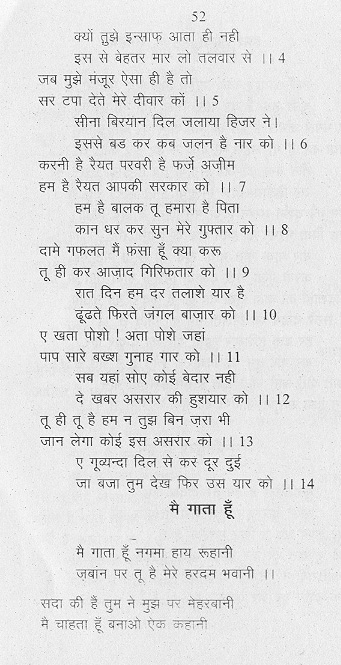 52
क्यों तुझे इन्साफ आता ही नही
इस से बेहतर मार लो तलवार से ।। 4
जब मुझे मंजूर ऐसा ही है तो
सर टपा देते मेरे दीवार कों ।। 5
सीना बिरयान दिल जलाया हिजर ने।
इससे बड कर कब जलन है नार को ।। 6
करनी है रैयत परवरी है फर्जे अज़ीम
हम है रैयत आपकी सरकार को ।। 7
हम है बालक तू हमारा है पिता
कान धर कर सुन मेरे गुफ्तार को ।। 8
दामे गफलत मैं फंसा हूँ क्या करू
तू ही कर आज़ाद गिरिफतार को ।। 9
रात दिन हम दर तलाशे यार है
ढूंढते फिरते जंगल बाज़ार को ।। 10
ए खता पोशो ! अता पोशे जहां
पाप सारे बख्श गुनाह गार को ।। 11
सब यहां सोए कोई बेदार नही
दे खबर असरार की हुशयार को ।। 12
तू ही तू है हम न तुझ बिन ज़रा भी
जान लेगा कोई इस असरार को ।। 13
ए गूव्यन्दा दिल से कर दूर दुई
जा बजा तुम देख फिर उस यार को ।। 14
मै गाता हूँ
मै गाता हूँ नगमा हाय रूहानी
ज़बांन पर तू है मेरे हरदम भवानी ।।
सदा की हैं तुम ने मुझ पर मेहरबानी
मै चाहता हूँ बनाओ ऐक कहानी